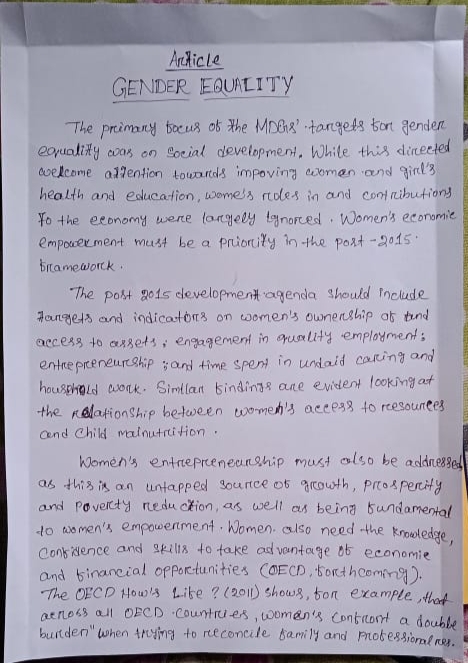 Article
GENDER EQUALITY
The primary focus of the MDGs' targets for gender
equality was on social development. While this directed
welcome attention towards impoving women and girl's
health and education, wome's roles in and contributions
to the economy were largely ignored. Women's economic
empowerment must be a priority in the post-2015.
framework.
The post 2015 development agenda should include
targets and indicators on women's ownership of and
access to assets; engagement in quality employment;
entrepreneurship; and time spent in undaid caring and
household work. Simllar findings are evident looking at
the relationship between women's access to reesources
and child malnutrition.
Women's entrepreneurship must also be addressed
as this is an untapped source of growth, prosperity
and poverty reduction, as well as being fundamental
to women's empowerment. Women also need the knowledge,
confidence and skills to take advantage of economic
and financial opportunities (OECD, forthcoming).
The OECD How's Life? (2011) shows, for example, that
across all OECD countries, women's confront a double
burden" when trying to reconcile family and professional res.